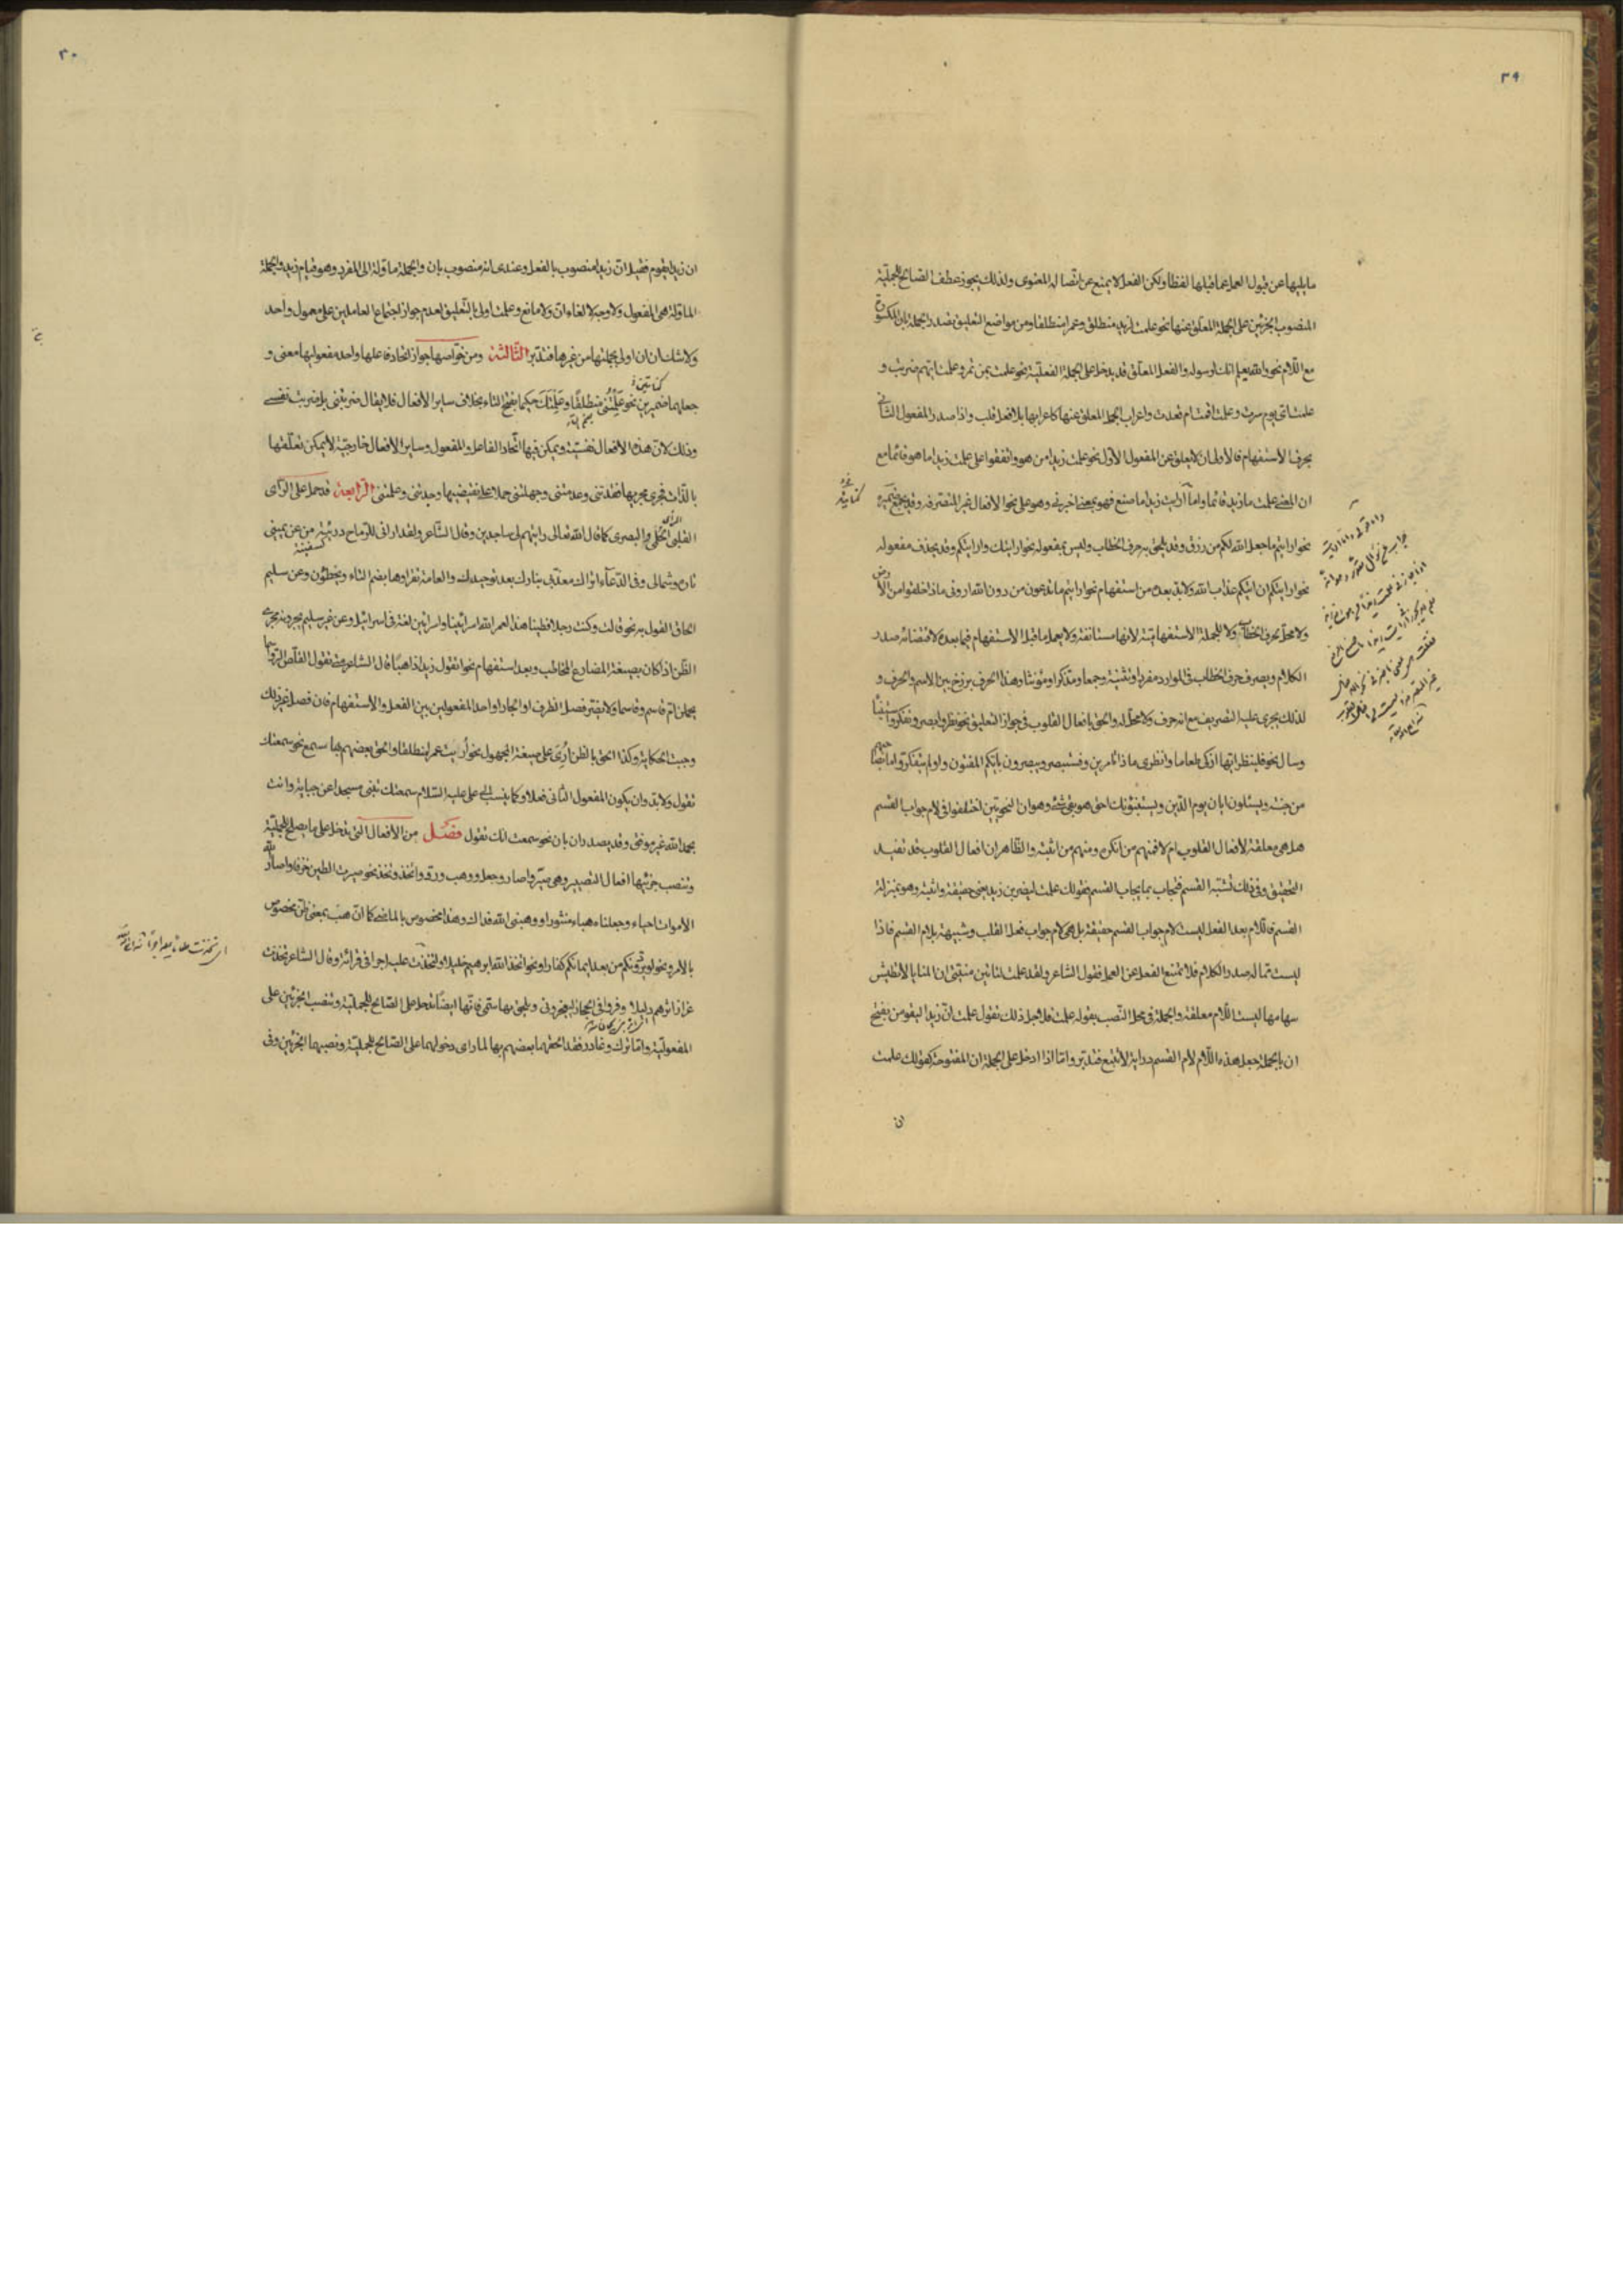 ٣٩
ما يليها عن قبول العمل عما قبلها لفظا ولكن الفعل لا يمنع عن اتصاله المعنوى ولذلك يجوز عطف الصالح للجملية
المنصوب الجزئين على الجملة المعلق عنها نحو علمت لزيد منطلق وعمرا منطلقا ومن مواضع التعليق تصدر الجملة بان المكسورة
مع اللام نحو والله يعلم انك لرسوله والفعل المعلق قد يدخل على الجملة الفعلية نحو علمت بمن تمر وعلمت ايهم ضربت و
علمت اى يوم سرت وعلمت اقمت ام قعدت واعراب الجمل المعلق عنها كاعرابها بلا فعل قلب واذا صدر المفعول الثانى
بحرف الاستفهام فالاولى ان لا يعلق عن المفعول الاول نحو علمت زيدا من هو واتفقوا على علمت زيدا ما هو قائما مع
ان المعنى علمت ما زيد قائما واما ارايت زيدا ما صنع فهو بمعنى اخبرنى وهو على نحو الافعال غير المتصرفه وقد يجمع ضميره
نحو ارايتم ما جعل الله لكم من رزق وقد يلحق به حرف الخطاب وليس بمفعوله نحو ارايتك وارايتكم وقد يحذف مفعوله
نحو ارايتكم ان اتيكم عذاب الله ولا بد بعده من استفهام نحو ارايتم ما تدعون من دون الله ارونى ماذا خلقوا من الارض
ولا محل لحرف الخطاب ولا للجملة الاستفهامية لانها مستانفة ولا يعمل ما قبل الاستفهام فيما بعده لاقتضائه صدر
الكلام ويصرف حرف الخطاب فى الموارد مفردا وتثنية وجمعا ومذكرا ومؤنثا وهذا الحرف برزخ بين الاسم والحرف و
لذلك يجرى عليه التصريف مع انه حرف ولا محل له والحق بافعال القلوب فى جواز التعليق نحو نظر وابصر وتفكر واستنبأ
وسال نحو فلينظر ايها ازكى طعاما وانظرى ماذا تامرين وفستبصر ويبصرون بايكم المفتون واولم يتفكروا ما بصاحبهم
من جنة ويسئلون ايان يوم الدين ويستنبؤنك احق هو بقى شئ وهو ان النحويين اختلفوا فى لام جواب القسم
هل هى معلقة لافعال القلوب ام لا فمنهم من انكره ومنهم من اثبته والظاهر ان افعال القلوب قد تفيد
التحقيق وفى ذلك تشبه القسم فتجاب بما يجاب القسم نحو قولك علمت ليضربن زيد يعنى حقيقة واثبته وهو بمنزلة
القسم فاللام بعد الفعل ليست لام جواب القسم حقيقة بل هى لام جواب فعل القلب وشبيهة بلام القسم فاذا
ليست مما له صدر الكلام فلا تمنع الفعل عن العمل فقول الشاعر ولقد علمت لتاتين منيتى ان المنايا لا تطيش
سهامها ليست اللام معلقة والجملة فى محل النصب بقوله علمت فلاجل ذلك تقول علمت ان زيدا ليقومن بفتح
ان بالجملة جعل هذه اللام لام القسم دراية لا تتبع فتدبر واما اذا ادخل على الجملة ان المفتوحة كقولك علمت
ان
٣٠
ان زيدا يقوم فقيل ان زيدا منصوب بالفعل وعندى انه منصوب بان والجملة ماولة الى المفرد وهو قيام زيد والجملة
الماولة هى المفعول ولا وجه لالغاء ان ولا مانع وعلمت اولى بالتعليق لعدم جواز اجتماع العاملين على معمول واحد
ولا شك ان ان اولى بجملتها من غيرها فتدبر الثالثة ومن خواصها جواز اتحاد فاعلها واحد مفعوليها معنى و
جعلهما ضميرين نحو علمتنى منطلقا وعلمتك حكيما بفتح التاء بخلاف ساير الافعال فلا يقال ضربتنى بل ضربت نفسى
وذلك لان هذه الافعال نفسية ويمكن فيها اتحاد الفاعل والمفعول وساير الافعال خارجية لا يمكن تعلقها
بالذات فجرى مجريها فقدتنى وعدمتنى وجهلتنى حملا على نقيضيهما وجدتنى وعلمتنى الرابعة قد حمل على الراى
القلبى الحلمى والبصرى كما قال الله تعالى رايتهم لى ساجدين وقال الشاعر ولقد ارانى للرماح دريئة من عن يمينى
تارة وشمالى وفى الدعاء اتراك معذبى بنارك بعد توحيدك والعامة تقراوها بضم التاء ويخطئون وعن سليم
الحاق القول به نحو قالت وكنت رجلا فطينا هذا لعمر الله اسرائينا واسرائين لغة فى اسرائيل وعن غير سليم يجرونه مجرى
الظن اذا كان بصيغة المضارع المخاطب وبعد استفهام نحو اتقول زيدا ذاهبا قال الشاعر متى تقول القلص الرواسما
يحملن ام قاسم وقاسما ولا يضر فصل الظرف او الجار او احد المفعولين بين الفعل والاستفهام فان فصل غير ذلك
وجبت الحكاية وكذا الحق بالظن ارى على صيغة المجهول نحو اريت عمرا منطلقا والحق بعضهم بها سمع نحو سمعتك
تقول ولا بد وان يكون المفعول الثانى فعلا وكما ينسب الى على عليه السلام سمعتك تبنى مسجدا عن جباية وانت
بحمد الله غير موفق وقد يصدر ان بان نحو سمعت انك تقول فصل من الافعال التى تدخل على ما يصلح للجملية
وتنصب جزئيها افعال التصيير وهى صير واصار وجعل ووهب ورد واتخذ وتخذ نحو صيرت الطين خزفا واصار الله
الاموات احياء وجعلناه هباء منثورا ووهبنى الله فداك وهذا مخصوص بالماضى كما ان هب بمعنى ظن مخصوص
بالامر ونحو لو يردونكم من بعد ايمانكم كفارا ونحو اتخذ الله ابرهيم خليلا ولتخذت عليه اجرا فى قرائة وقال الشاعر تخذت
غراز اثرهم دليلا وفروا فى الحجاز ليعجزونى ويلحق بها سمى فانها ايضا تدخل على الصالح للجملية وتنصب الجزئين على
المفعولية واما ترك وغادر فقد الحقهما بعضهم بها لما راى دخولهما على الصالح للجملية ونصبهما الجزئين وفى